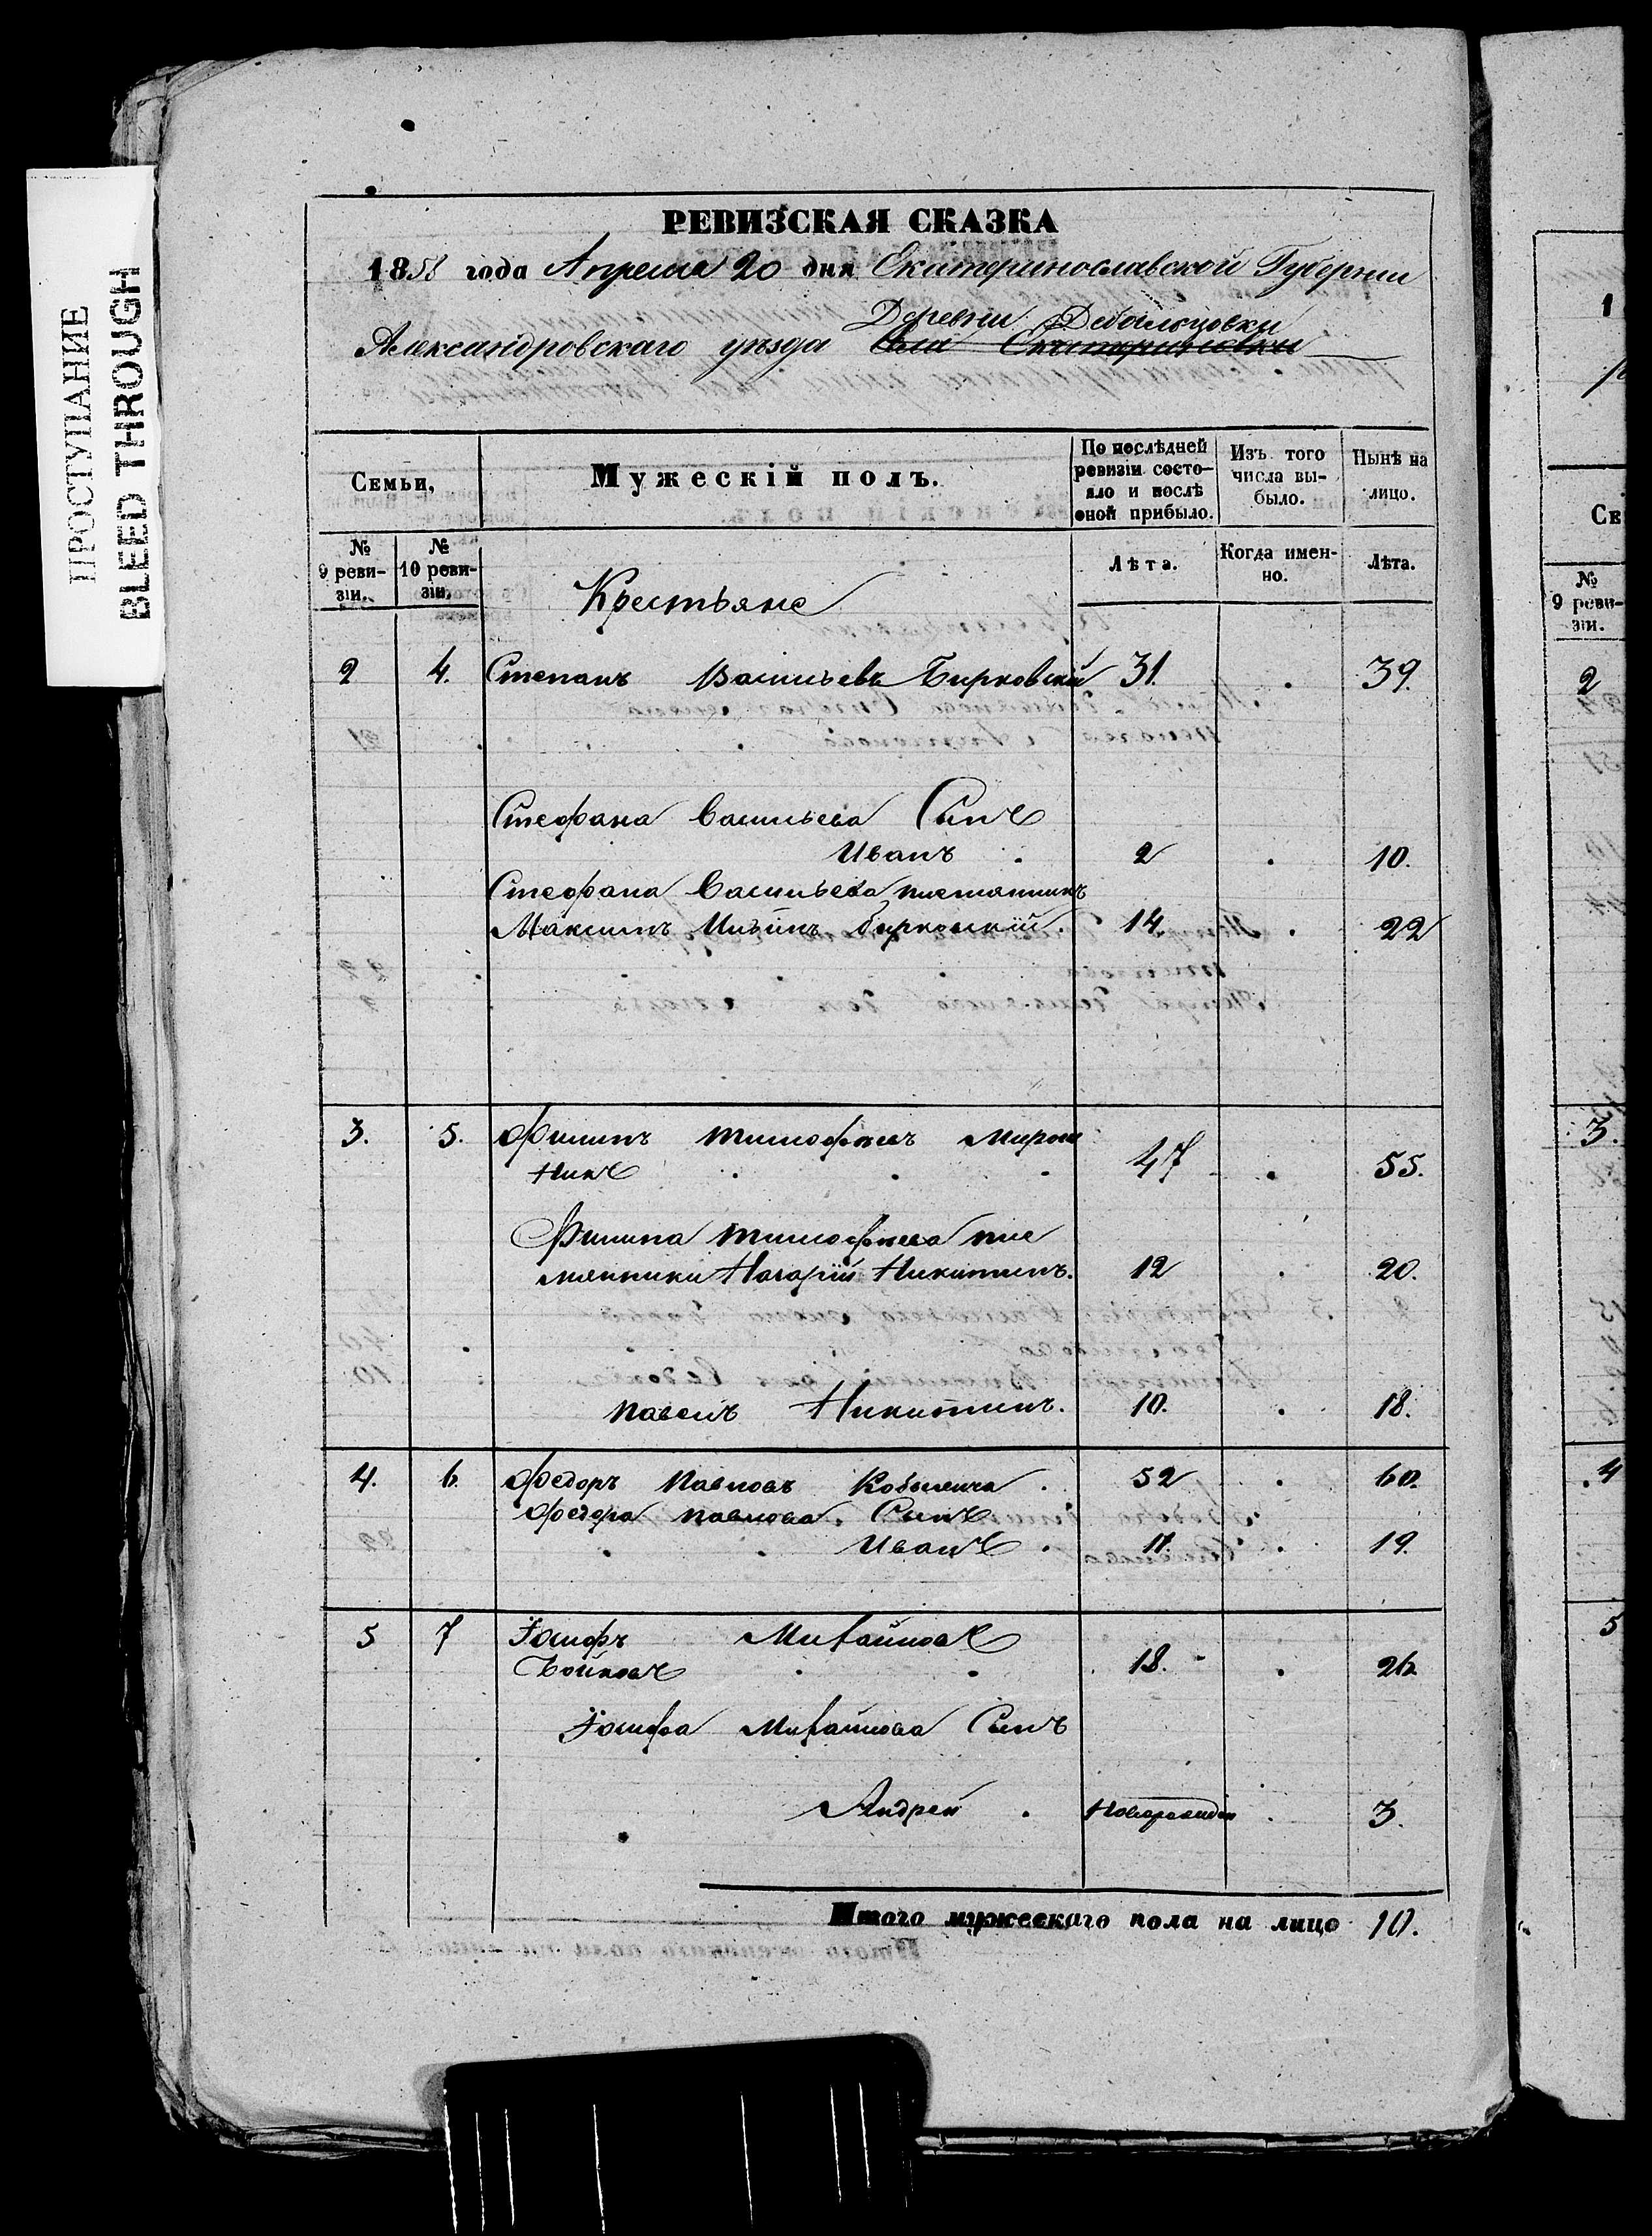 ПРОСТУПАНИЕ
BLEED THROUGH
РЕВИЗСКАЯ СКАЗКА
1858 года Апреля 20 дня Екатеринославской Губернии
Деревни Дебальцовки
Александровскаго уѣзда Села Екатериновки
Семьи,
Мужескій полъ.
По послѣдней ревизіи состояло и послѣ оной прибыло.
Изъ того числа выбыло.
Нынѣ на лицо.
№ 9 ревизіи.
№ 10 ревизіи.
Лѣта.
Когда именно.
Лѣта.
Крестьяне
2 4. Степанъ Васильевъ Бирковскій 31. 39.
Стефана Васильева Сынъ
Иванъ 2 10.
Стефана Васильева племянникъ
Максимъ Ильинъ Бирковскій. 14. 22
3. 5. Филипъ Тимофѣевъ Мирош
никъ 47 55.
Филипа Тимофѣева пле
мянники Назарій Никитинъ. 12 20.
Павелъ Никитинъ. 10. 18.
4. 6. Федоръ Павловъ Кобылчка 52 60.
Федора Павлова Сынъ
Иванъ 11. 19.
5 7 Іосифъ Михайловъ
Бойковъ 18. 26.
Іосифа Михайлова Сынъ
Андрей 3.
Итого мужескаго пола на лицо 10.
1
Се
№
9 реви-
зіи.
2
3.
4
5